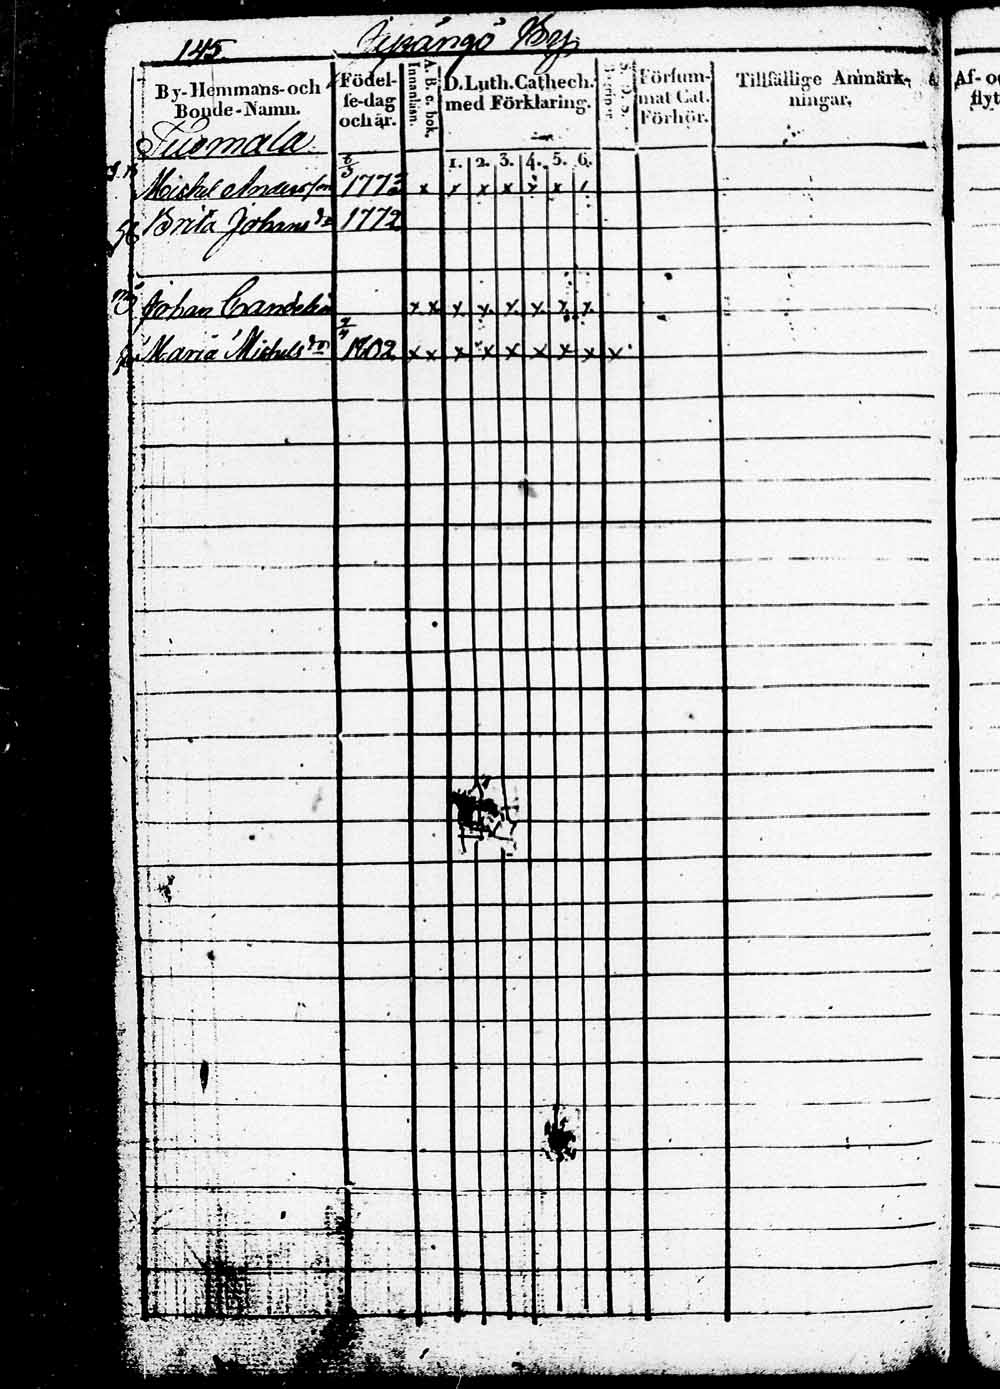 145. Byn
By-Hemmans-och Bonde-Namn.
Födel-se-dag och år.
A. B. c. bok. Innanläsn.
D. Luth. Cathech. med Förklaring.
Försum-mat Cat. Förhör.
Tillfällige Anmärk-ningar.
Af- o
flyt
1. 2. 3. 4. 5. 6.
Michel Andersson 1773 x x x x x x
Brita Johansdr 1772
Johan x x x x x x x x
Maria Michelsdr 1802 x x x x x x x x x